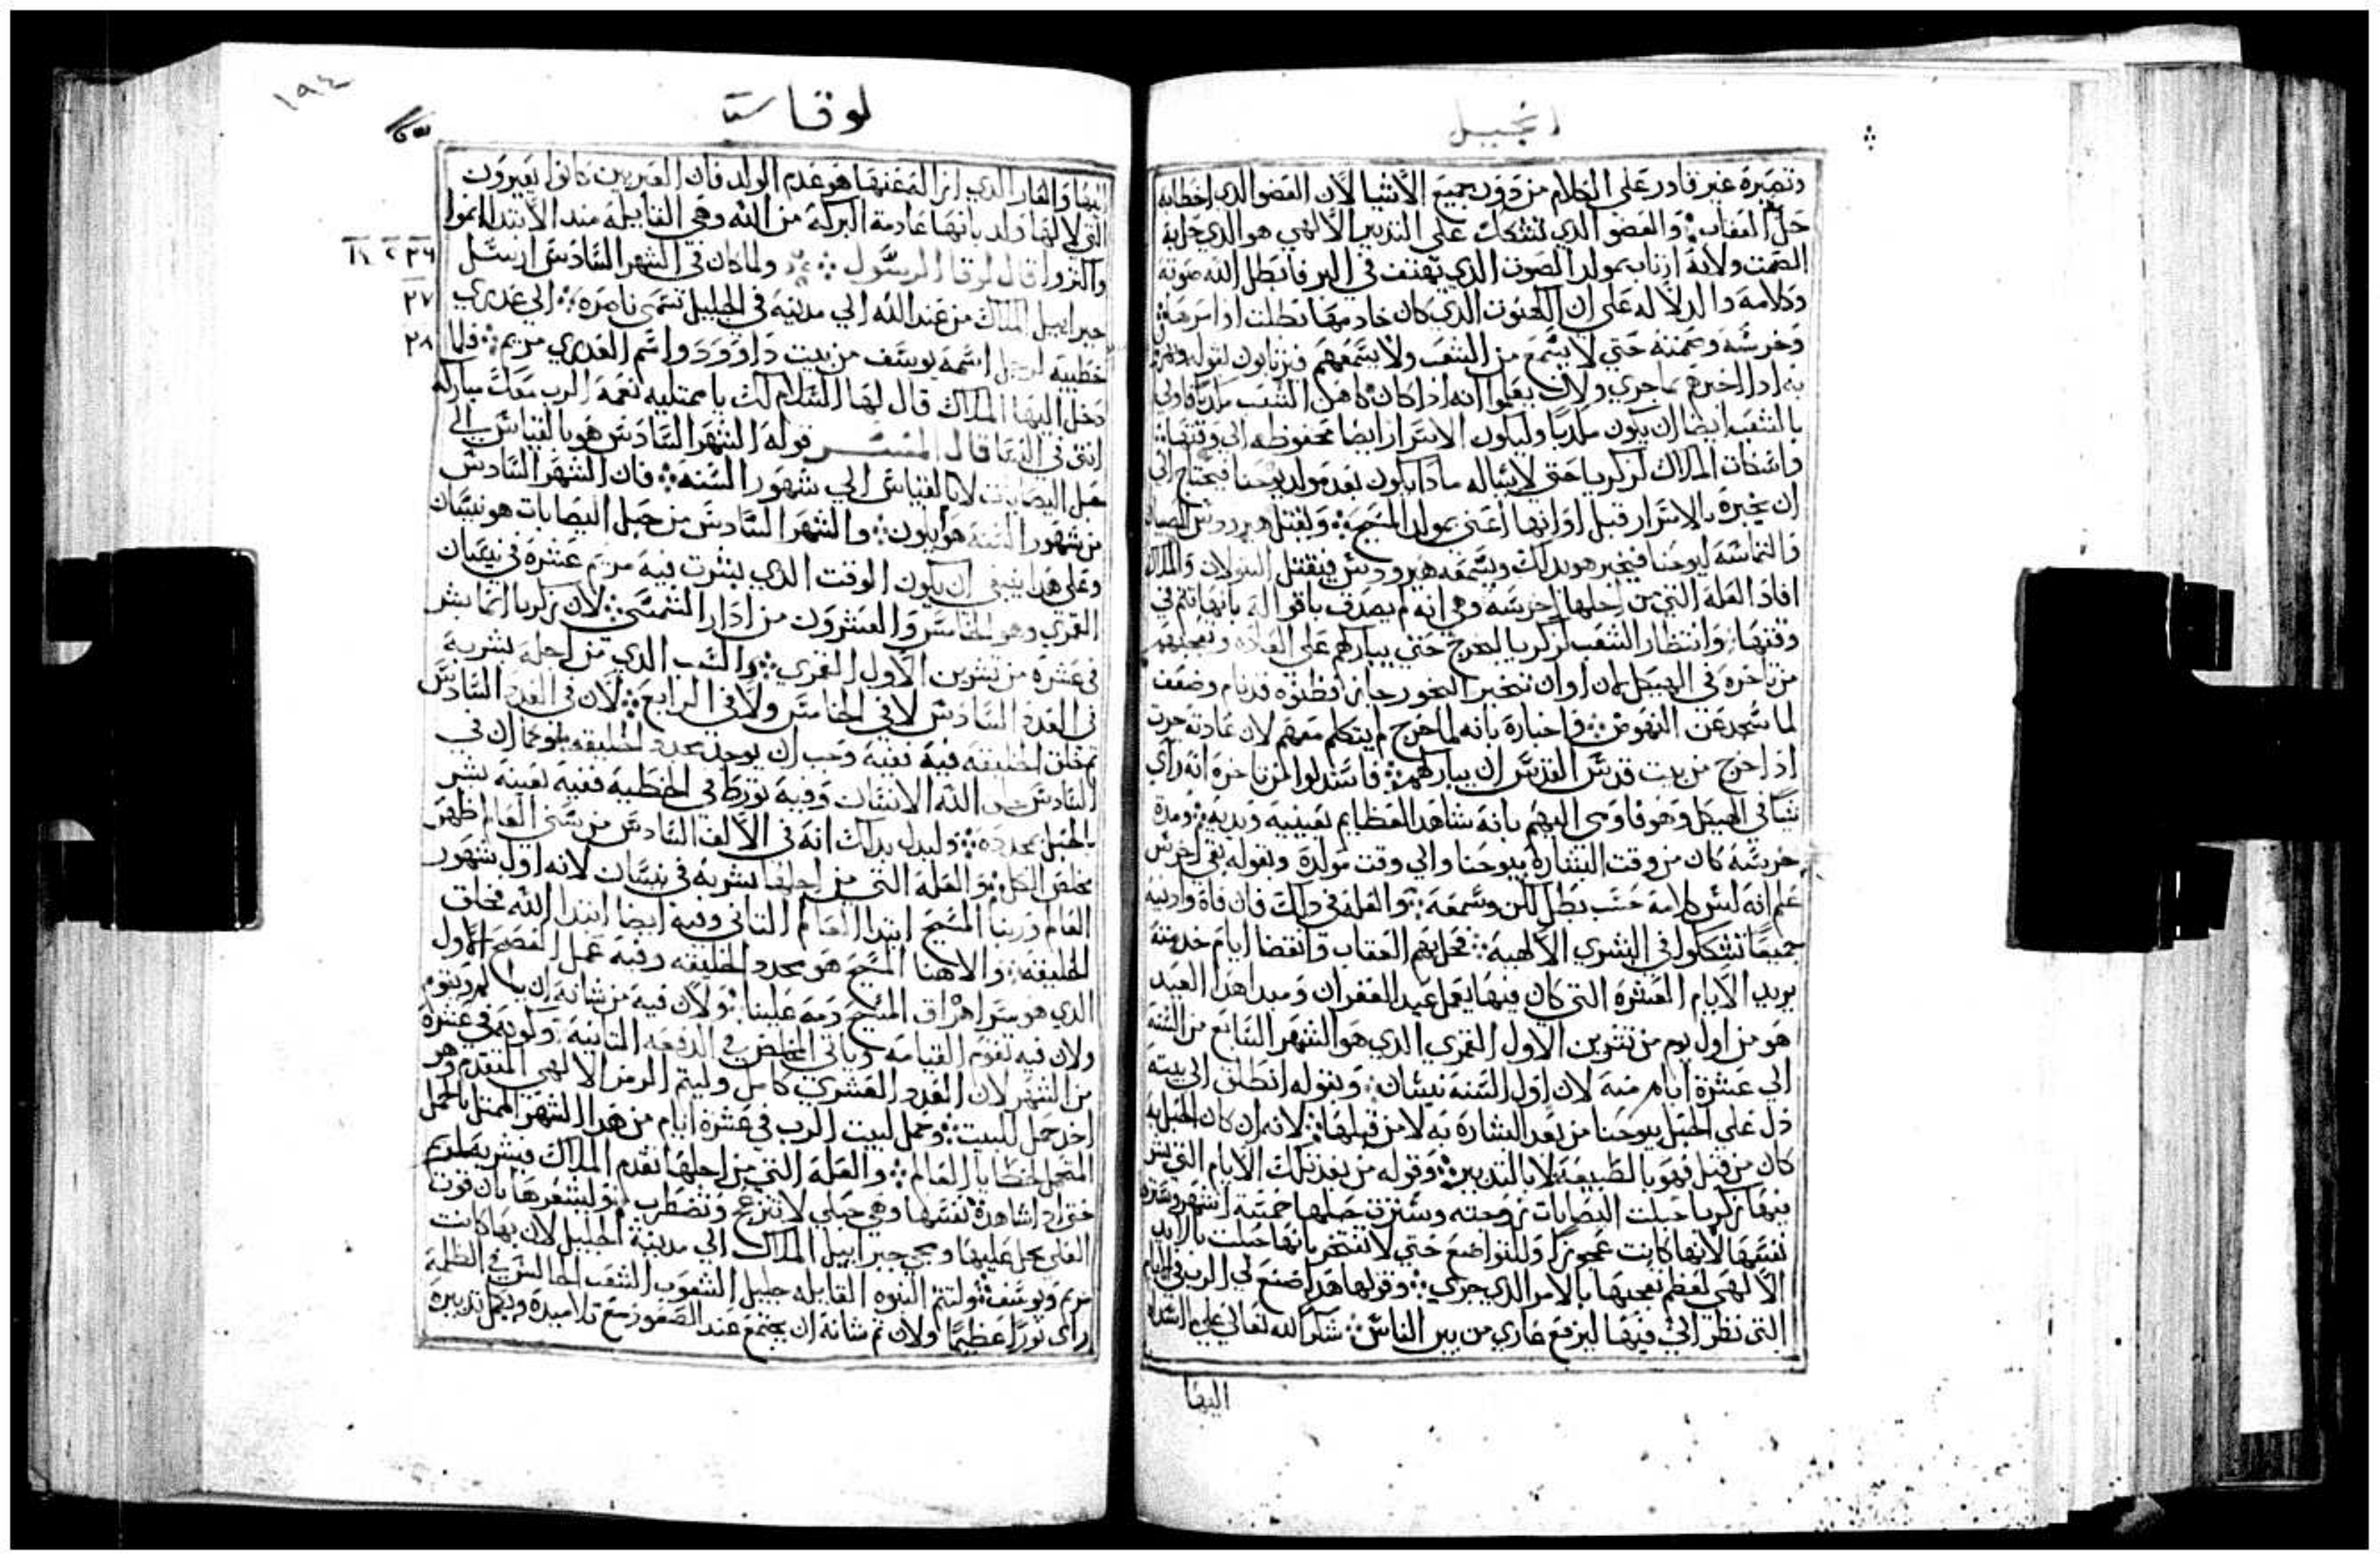 انجيل
وتصيره غير قادر على الكلام من دون جميع الاشيا لان العضو الدي اخطا به
حل العقاب والعضو الدي تشكك على التدبير الالهي هو الدي حل به
الصمت ولانه ارتاب بمولد الصوت الدي يهتف في البر فابطل الله صوته
وكلامه والدلاله على ان الكهنوت الدي كان خادمها بطلت اوامرها
وخرسه وصمته حتي لا يسمع من الشعب ولا يسمعهم فيرتابون لقوله
به ادا اخبرهم بما جري ولان يعلموا انه ادا كان كاهن الشعب مكدبا فاولي
بالشعب ايضا ان يكون مكدبا وليكون الاسرار ايضا محفوظه الي وقتها
واسكات الملاك لزكريا حتي لا يساله مادا يكون بعد مولد يوحنا فيحتاج الي
ان يخبره بالاسرار قبل اوانها اعني بمولد المسيح ولقتل هيرودس الصبيان
والتماسه ليوحنا فيخبر هو بدلك ويسمعه هيرودس فيقتل البتولان والملاك
افاد العله التي من اجلها اخرسه وهي انه لم يصدق باقواله بانها تتم في
وقتها وانتظار الشعب لزكريا ليخرج حتي يباركهم على العاده وتعجبهم
من تاخره في الهيكل لان اوان تبخير البخور جاز فظنوه قد نام وضعف
لما سجد عن النهوض واخباره بانه لما خرج لم يتكلم معهم لان عادته جرت
ادا خرج من بيت قدس القدس ان يباركهم فاستدلوا من تاخره انه راي
شيا في الهيكل وهو فاومي اليهم بانه شاهد العظايم بعينيه وبديه ومدة
خرسه كان من وقت البشاره بيوحنا والي وقت مولده وبقوله بقي اخرس
علم انه ليس كلامه حسب بطل لكن وسمعه والعله في دلك فان فاه وادنيه
جميعا تشككوا في البشري الالهيه فحل بهم العقاب وانقضا ايام خدمته
يريد الايام العشره التي كان فيها يعمل عيد الغفران ومبدا هدا العيد
هو من اول يوم من تشرين الاول القمري الدي هو الشهر السابع من السنه
الي عشرة ايام منه لان اول السنه نيسان وبقوله انطلق الي بيته
دل على الحبل بيوحنا من بعد البشاره به لا من قبلها لانه ان كان الحبل به
كان من قبل فهو بالطبيعه لا بالتدبير وقوله من بعد تلك الايام التي بشر
فيها زكريا حبلت اليصابات زوجته وسترت حبلها خمسة اشهر وستره
نفسها لانها كانت عجوزا وللتواضع حتي لا تفتخر بانها حبلت بالايد
الالهي لعظم تعجبها بالامر الدي جري وقولها هدا صنع لي الرب في الايام
التي نظر الي فيها ليرفع عاري من بين الناس شكرا لله تعالي على
اليها
لوقا
١٩٤
اليها والعار الدي ازاله عنها هو عدم الولد فان العبريين كانوا يعيرون
التي لا لها ولد بانها عادمة البركه من الله وهي القايله مند الابتدا انموا
واكثروا قال لوقا الرسول ولما كان في الشهر السادس ارسل
٢٦
جبراييل الملاك من عند الله الي مدينه في الجليل تسمي ناصره الي عدري
٢٧
خطيبه لرجل اسمه يوسف من بيت داوود واسم العدري مريم فلما
٢٨
دخل اليها الملاك قال لها السلام لك يا ممتليه نعمه الرب معك مباركه
انتي في النسا قال المفسر قوله الشهر السادس هو بالقياس الي
حبل اليصابات لا بالقياس الي شهور السنه فان الشهر السادس
من شهور السنه هو ايلون والشهر السادس من حبل اليصابات هو نيسان
وعلى هدا ينبغي ان يكون الوقت الدي بشرت فيه مريم عشره في نيسان
القمري وهو الخامس والعشرون من ادار الشمسي لان زكريا انما بشر
في عشره من تشرين الاول القمري والسبب الدي من اجله بشر به
في العدد السادس لا في الخامس ولا في الرابع لان في العدد السادس
خلق الخليقه فيه نفسه وجب ان يوجد مجدد الخليقه وكما ان في
السادس خلق الله الانسان وفيه تورط في الخطيه ففيه بعينه بشر
بالحبل بمجدده وليدل بدلك انه في الالف السادس من سني العالم ظهر
مخلص الكل والعله التي من اجلها بشر به في نيسان لانه اول شهور
العام وربنا المسيح ابتدا العالم التاني وفيه ايضا ابتدا الله بخلق
الخليقه والاهنا المسيح هو مجدد الخليقه وفيه عمل الفصح الاول
الدي هو سر اهراق المسيح دمه علينا ولان فيه من شانه ان
ولان فيه تقوم القيامه وياتي المخلص في الدفعه التانيه وكونه في عشرة
من الشهر لان العدد العشري كامل وليتم الرمز الالهي المتقدم وهو
اخد حمل للبيت وحمل لبيت الرب في عشرة ايام من هدا الشهر الممتل بالحمل
المتحمل خطايا العالم والعله التي من اجلها تقدم الملاك فبشر به لمريم
حتي ادا شاهدة نفسها وهي حبلي لا تنزعج وتضطرب وليشعرها بان قوت
العلي تحل عليها ومجي جبراييل الملاك الي مدينة الجليل لان بها كانت
مريم ويوسف ولتتم النبوه القايله جليل الشعوب الشعب الجالس في الظلمه
راي نورا عظيما ولان تم شانه ان يجتمع عند الصعود مع تلاميده ويكمل تدبيره